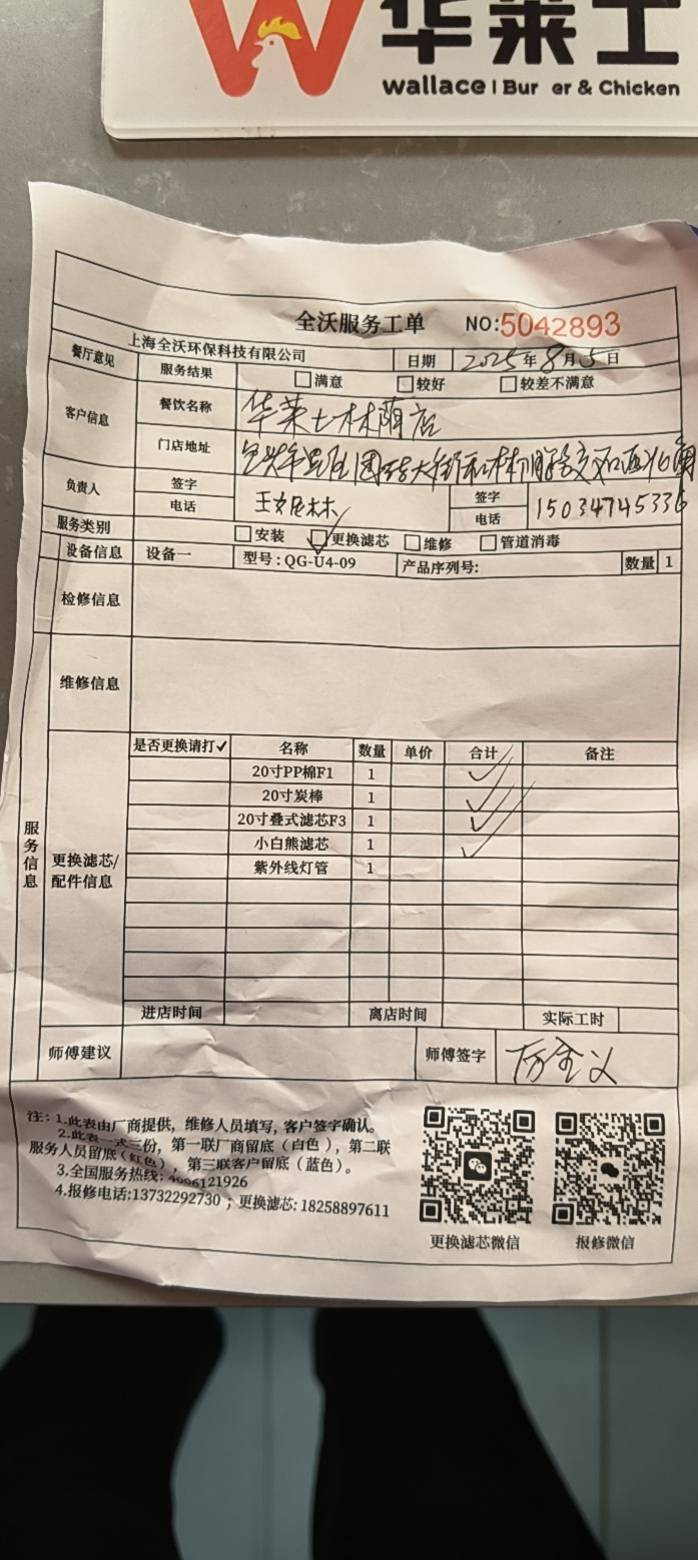 华莱士
wallace | Bur er & Chicken
全沃服务工单 NO:5042893
上海全沃环保科技有限公司 日期 2025年8月5日
餐厅意见 服务结果 满意 较好 较差不满意
客户信息 餐饮名称 华莱士林荫店
门店地址
负责人 签字 电话 王妮林 签字 电话 15034745336
服务类别 安装 更换滤芯 维修 管道消毒
设备信息 设备一 型号:QG-U4-09 产品序列号: 数量 1
检修信息
维修信息
服务信息
更换滤芯/配件信息
是否更换请打✓ 名称 数量 单价 合计 备注
20寸PP棉F1 1 ✓
20寸炭棒 1 ✓
20寸叠式滤芯F3 1 ✓
小白熊滤芯 1 ✓
紫外线灯管 1
进店时间 离店时间 实际工时
师傅建议 师傅签字
注:1.此表由厂商提供，维修人员填写，客户签字确认。
2.此表一式三份，第一联厂商留底（白色），第二联
服务人员留底（红色），第三联客户留底（蓝色）。
3.全国服务热线:4006121926
4.报修电话:13732292730；更换滤芯:18258897611
更换滤芯微信 报修微信